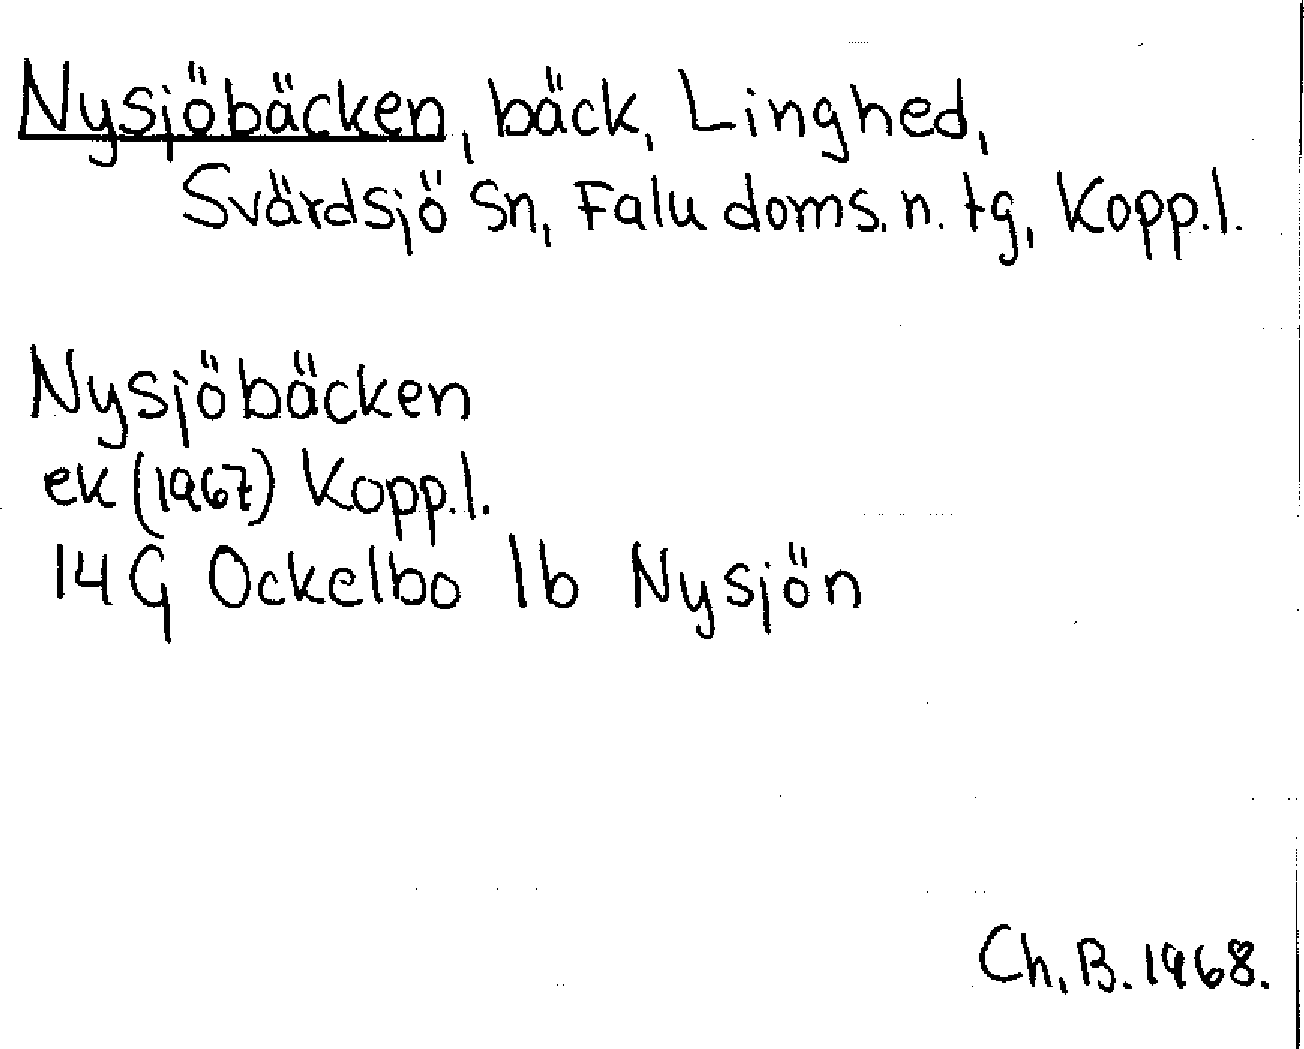 Nysjöbäcken, bäck, Linghed,
Svärdsjö Sn, Falu doms. n. tg, Kopp.l.
Nysjöbäcken
ek (1967) Kopp.l.
14G Ockelbo 1b Nysjön
Ch. B. 1968.